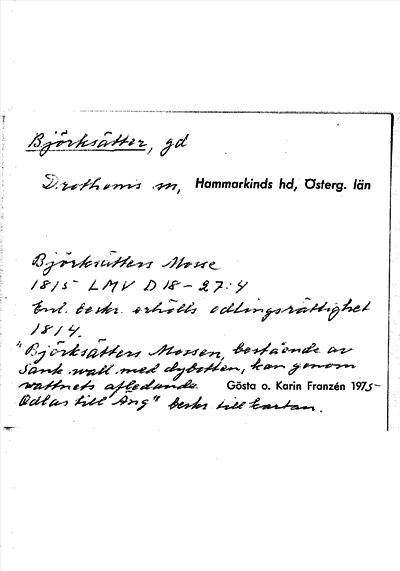 Björksätter, gd
Drothems sn, Hammarkinds hd, Österg. län
Björksätters Mosse
1815 LMV D 18-27:4
Enl. beskr. erhölls odlingsrättighet
1814.
"Björksätters Mossen, bestående av
Sank wall med dybotten, kan genom
wattnets afledande Gösta o. Karin Franzén 1975
Odlas till Äng" beskr till kartan.